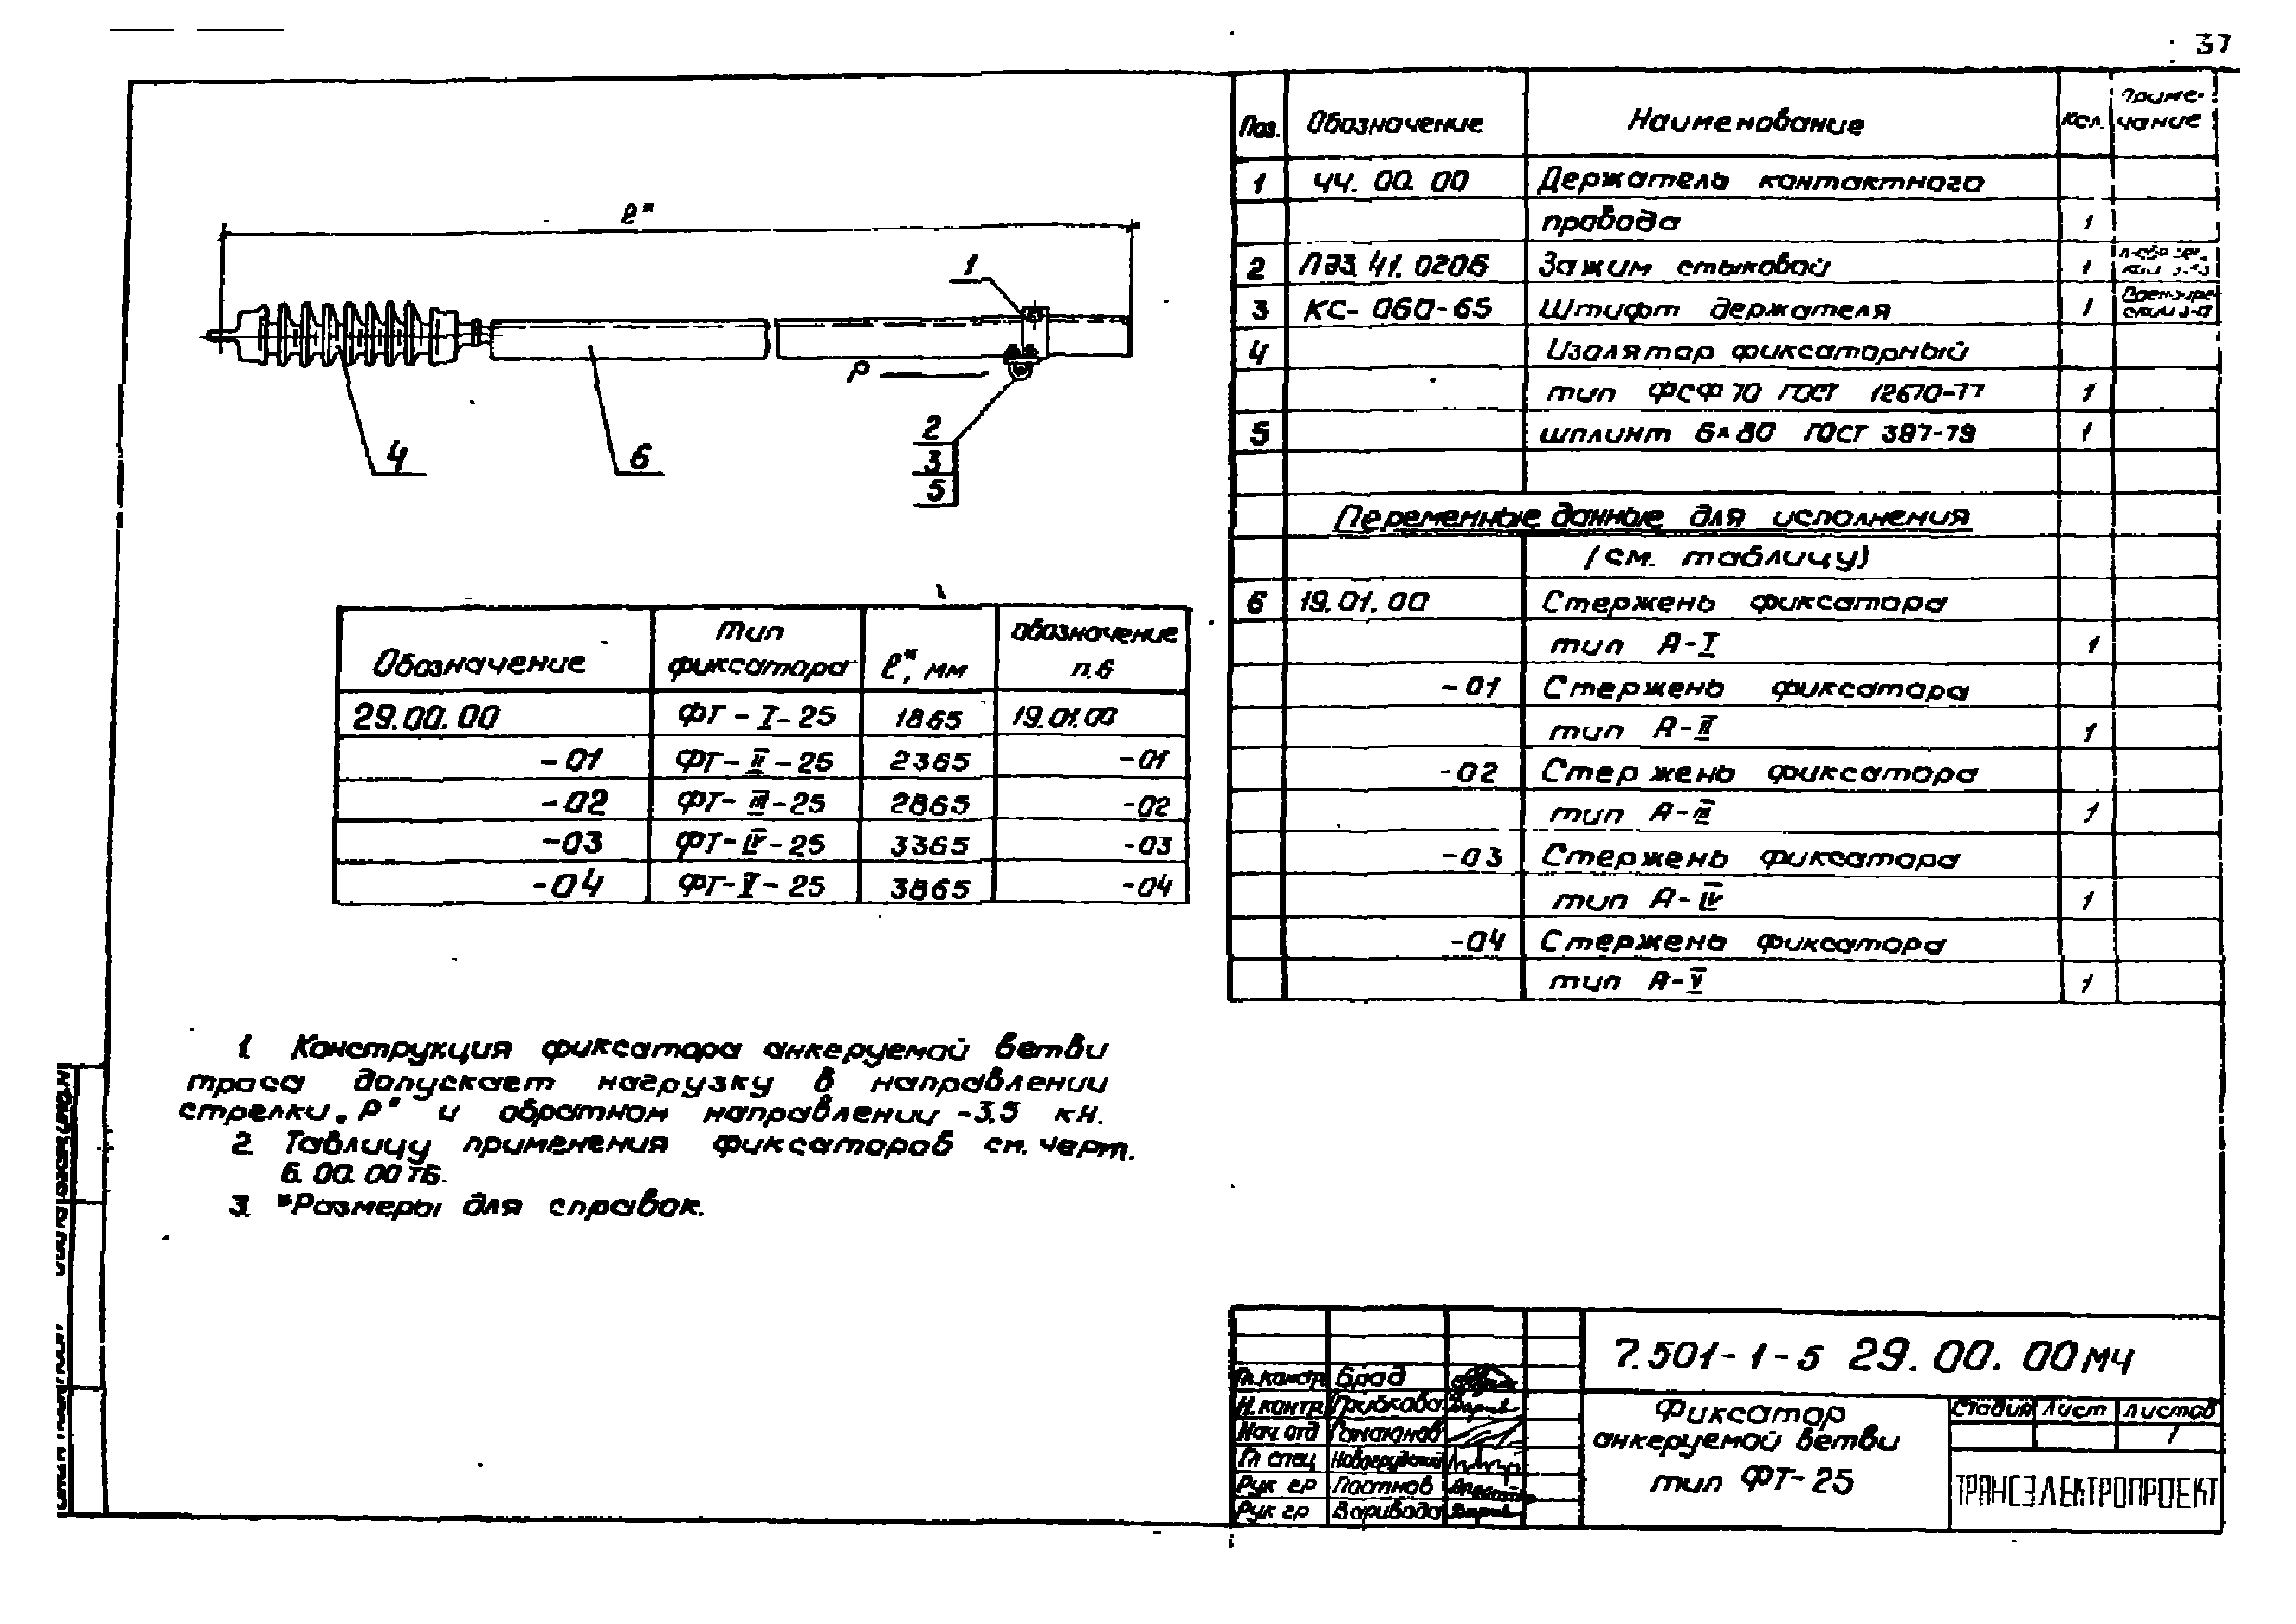 37
ℓ*
1
P
4
6
2
3
5
Обозначение | тип фиксатора | ℓ*, мм | обозначение п.6
29.00.00 | ФТ-I-25 | 1865 | 19.01.00
-01 | ФТ-II-25 | 2365 | -01
-02 | ФТ-III-25 | 2865 | -02
-03 | ФТ-IV-25 | 3365 | -03
-04 | ФТ-V-25 | 3865 | -04
1. Конструкция фиксатора анкеруемой ветви
троса допускает нагрузку в направлении
стрелки „P" и обратном направлении -3,5 кН.
2. Таблицу применения фиксаторов см. черт.
6.00.00ТБ.
3. *Размеры для справок.
Поз. | Обозначение | Наименование | Кол. | Приме-чание
1 | 44.00.00 | Держатель контактного
провода | 1
2 | ПЭЗ.41.0206 | Зажим стыковой | 1
3 | КС-060-65 | Штифт держателя | 1
4 | Изолятор фиксаторный
тип ФСФ 70 ГОСТ 12670-77 | 1
5 | шплинт 6×80 ГОСТ 397-79 | 1
Переменные данные для исполнения
(см. таблицу)
6 | 19.01.00 | Стержень фиксатора
тип А-I | 1
-01 | Стержень фиксатора
тип А-II | 1
-02 | Стержень фиксатора
тип А-III | 1
-03 | Стержень фиксатора
тип А-IV | 1
-04 | Стержень фиксатора
тип А-V | 1
Гл.констр | Брад
Н.контр | Грибкова
Нач.отд
Гл спец | Новогрудский
Рук гр
Рук гр | Варивода
7.501-1-5 29.00.00МЧ
Фиксатор
анкеруемой ветви
тип ФТ-25
Стадия | Лист | Листов
1
ТРАНСЭЛЕКТРОПРОЕКТ